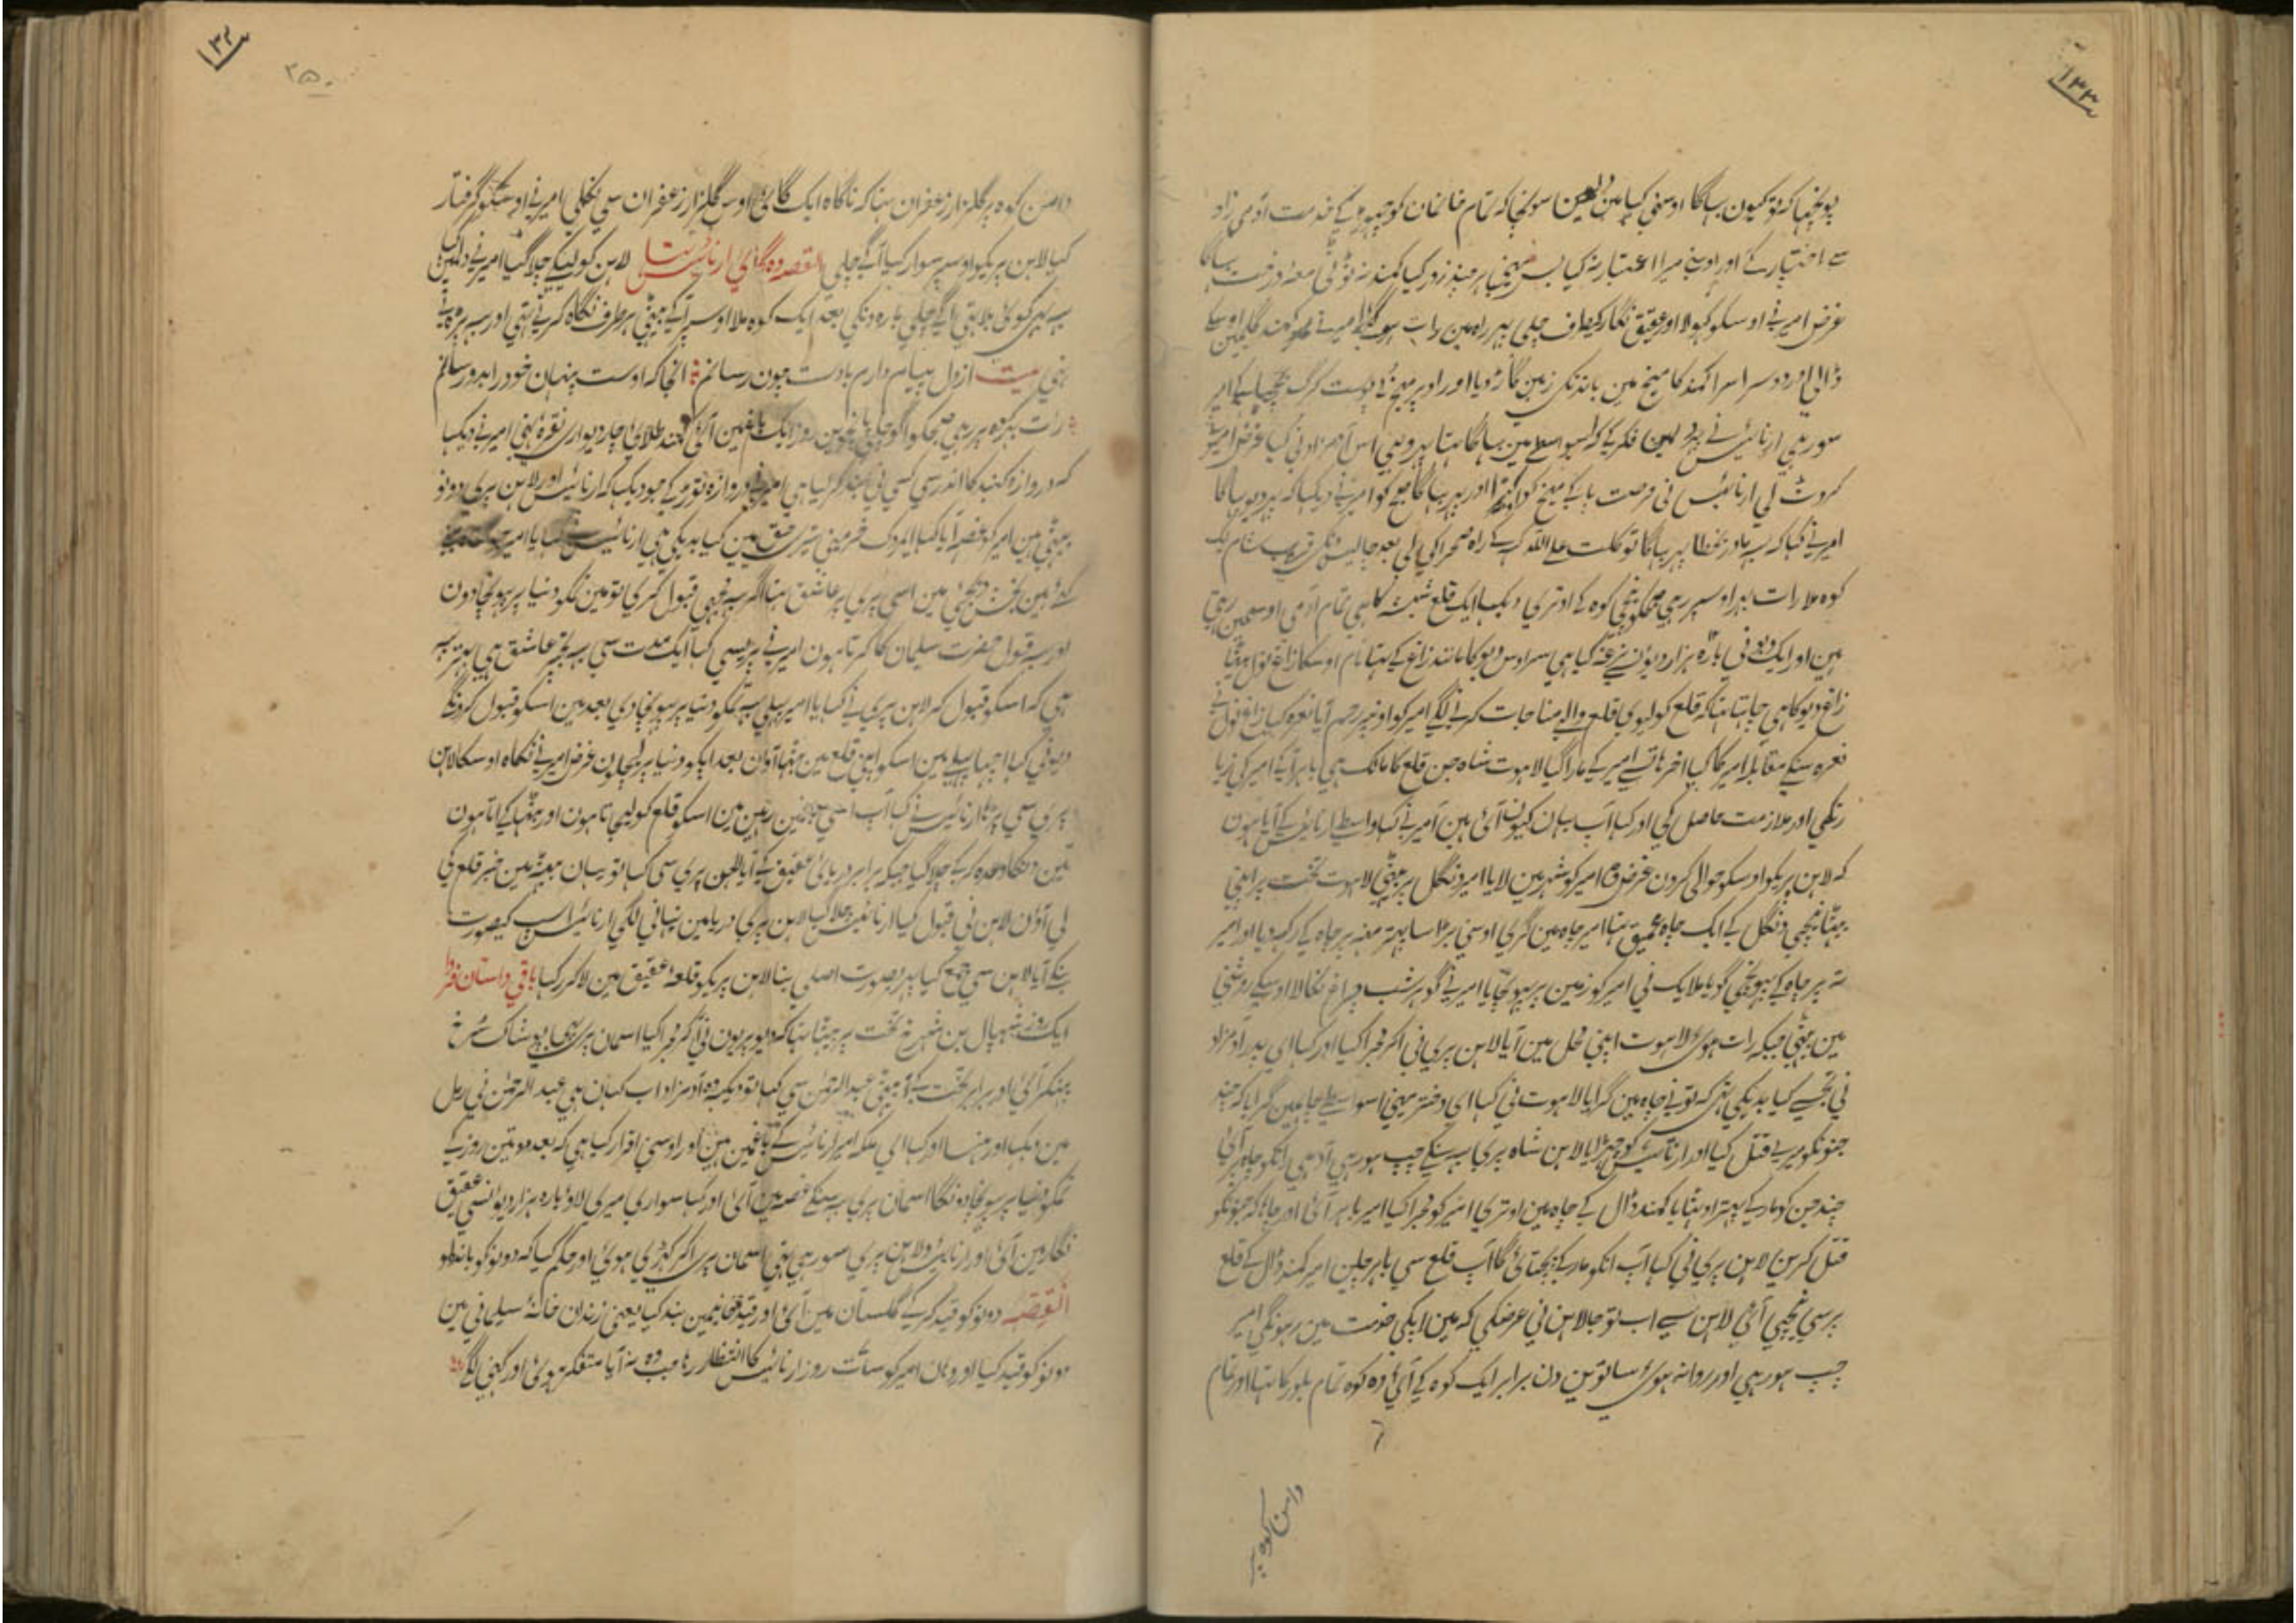 ۱۳۳
پونچھا کہ تو کیون بہاگا اوسنی کہا مین سونچا کہ تمام خانمان کو چہوڑ کے خدمت ادمی زاد
سے اختیار کے اور اوسنے میرا اعتبار نہ کیا بس ہرچند زور کیا کمند نہ ٹوٹی معہ درخت بہاگا
غرض امیر نے اوسکو کہولا اور عقیق نگار کیطرف چلی پہر راہ مین رات ہو گئی امیر نے کمند گلیمین اوسکے
ڈالی اور دوسرا سرا کمند کا میخ مین باندکی زمین گاڑ دیا اور اوپر میخ کے پوست گرگ بچہا کے امیر
سو رہی ارنائیس نے دلمین فکر کے کہ اسواسطے مین بہاگا تہا پہر وہی اس ادمزاد نی کیا غرض امیر نے
کروٹ لی ارنائیس نی فرصت پا کے میخ کو اور پہر بہاگا صبح کو امیر نے دیکہا کہ پہر دیو بہاگا
امیر نے کہا کہ یہ مادر بخطا پہر بہاگا توکلت علی اللہ کر کے راہ صحرا کی لی بعد چالیس دنکی قریب شام یک
کوہ ملا رات بہر اوسپر رہی صبحکو نیچی کوہ کے اوتری دیکہا ایک قلع شیشہ کا ہی تمام آدمی اوسمین رہتی
ہین اور ایک دیو نی بارہ ہزار دیوان نرغہ کیا ہی سر اوس دیو کا مانند زاغ کے تہا نام اوسکا زاغ نول
زاغ دیو کا ہی چاہتا تہا کہ قلع کو لیوی قلع والے مناجات کرنے لگے امیر کو اونپر رحم آیا نعرہ کیا زاغ نول نے
نعرہ سنکے مقابلہ امیر کا کیا اخر ہاتہے امیر کے مارا گیا لاہوت شاہ جن قلع کا مالک ہی باہر آیا امیر کی
اور ملازمت حاصل کی اور کہا آپ یہان کیون آئی ہین امیر نے کہا واسطے ارنائیس کے آیا ہون
کہ لاہن پریکو اوسکو حوالی کرون غرض وہ امیر کو شہر مین لایا امیر دنگل پر بیٹہی لاہوت تخت پر اپنی
بیٹہا نیچی دنگل کے ایک چاہ عمیق تہا امیر چاہ مین گری اوسنی بڑا سا پتہر منہ پر چاہ کے رکہدیا اور امیر
تہ پر چاہ کے پہونچی گویا ملایک نی امیر کو زمین پر پہونچایا امیر نے گوہر شب چراغ نکالا اوسکے روشنی
مین بیٹہی جبکہ رات ہوئی لاہوت اپنی محل مین آیا لاہن پری نی اکر مجرا کیا اور کہا ای پدر آدمزاد
نی تجسے کیا بدیکی تہی کہ تونے چاہ مین گرایا لاہوت نی کہا ای دختر مینی اسواسطے چاہمین گرایا کہ چند
جنونکو میرے قتل کیا اور ارنائیس کو چہڑایا لاہن شاہ پری یہ سنکے چپ ہو رہی آدہی انکو چاہ پر آئی
چند جن کو مار کے پتہر اوٹہایا کمند ڈال کے چاہ مین اوتری امیر کو مجرا کیا امیر باہر آئی اور چاہا کہ جنونکو
قتل کرین لاہن پری نی کہا آپ انکو مار کے پچتائی گا آپ قلع سی باہر چلین امیر کمند ڈال کے قلع
پر سی نیچی آئی لاہن سے اب تو جا لاہن نی عرضکی کہ مین اپکی خدمت مین رہونگی امیر
چپ ہو رہی اور روانہ ہوئی ساتوین دن برابر ایک کوہ کے آئی وہ کوہ تمام بلور کا تہا اور تمام
دامن کوہ پر
۱۳۴
۲۵۰
دامن کوہ پر گلزار زعفران تہا کہ ناگاہ ایک گائی اوس گلزار زعفران سی نکلی امیر نے اوسکو گرفتار
کیا لاہن پریکو اوسپر سوار کیا آگے چلی القصہ وہ گائی ارنائیس تہا لاہن کو لیکے چلا گیا امیر نے دلمین کہا
یہ بہی کوئی بلا تہی آگے چلی بارہ دنکی بعد ایک کوہ ملا اوسپر آ کے بیٹہی ہر طرف نگاہ کرتے تہی اور یہ پڑہتے
تہی بیت از دل پیام دارم بادت چون رسانم انجا کہ اوست پنہان خود را بدو رسانم
رات بہر کوہ پر رہی صبحکو اگو چلی پانچوین روز ایک باغمین آئی گنبد طلائی چار دیواری نقرہ کہنی امیر نے دیکہا
کہ دروازہ گنبد کا اندرسی کسی نی بند کر لیا ہی امیر نے دروازہ توڑ کے جو دیکہا کہ ارنائیس اور لاہن پری دونو
بیٹہی ہین امیر کو غصہ آیا کہا ایمردک خر مینی تیری حق مین کیا بدیکی ہی ارنائیس نے کہا یا امیر
کے ہین بخش دیجئی مین اسی پری پر عاشق تہا اگر یہ مجہی قبول کری تو مین تمکو دنیا پر پہونچادون
اور یہ قول حضرت سلیمان کا کرتا ہون امیر نے پریسی کہا ایک مدت سی یہ تجہپر عاشق ہی بہتر یہ
ہی کہ اسکو قبول کر لاہن پری نے کہا یا امیر پہلی یہ تمکو دنیا پر پہونچادی بعد مین اسکو قبول کرونگی
دیو نی کہا اچہا پہلے مین اسکو اپنی قلع مین بٹہا آون بعد اپکو دنیا پر لیجاون غرض امیر نے نکاہ اوسکا لاہن
پری سی پڑہا ارنائیس نے کہا آپ اسی باغمین رہین مین اسکو قلع کو لیجاتا ہون اور بٹہا کے اتا ہون
تین دنکا وعدہ کر کے چلا گیا جبکہ برابر دریائی عقیق کے آیا لاہن پری سی کہا تو یہان بیٹہ مین خبر قلع کی
لی آون لاہن نی قبول کیا ارنائیس چلا گیا لاہن پری دریا مین نہانی لگی ارنائیس اسپ کیصورت
بنکے آیا لاہن سی جمع کیا پہر بصورت اصلی بنا لاہن پریکو قلعہ عقیق مین لا کر رکہا باقی داستان فردا
ایک روز شہپال بن شہرخ تخت پر بیٹہا تہا کہ دیو پریون نی آ کر مجرا کیا اسمان پری بہی پوشاک سرخ
پہنکر آئی اور برابر تخت کے آ بیٹہی عبدالرحمن سی کہا تو دیکہ وہ آدمزاد اب کہان ہی عبدالرحمن نی رمل
مین دیکہا اور ہنسا اور کہا ای ملکہ امیر ارنائیس کے باغمین ہین اور اوسنی اقرار کیا ہی کہ بعد دو تین روز کے
تمکو دنیا پر پہونچا دونگا اسمان پری یہ سنکے غصہ مین آئی اور کہا سواری میری لاو بارہ ہزار دیو انسی عقیق
نگار مین آئی اور ارنائیس و لاہن پری سو رہی تہی اسمان پری اکر کہڑی ہوئی اور حکم کیا کہ دونو کو باندلو
القصہ دونو کو قید کر کے گلستان مین آئی اور قید خانیمین بند کیا یعنی زندان خانہ سلیمانی مین
دونو کو قید کیا اور وہان امیر کو سات روز ارنائیس کا انتظار رہا جب وہ نہ آیا متفکر ہوئی اور کہنی لگے